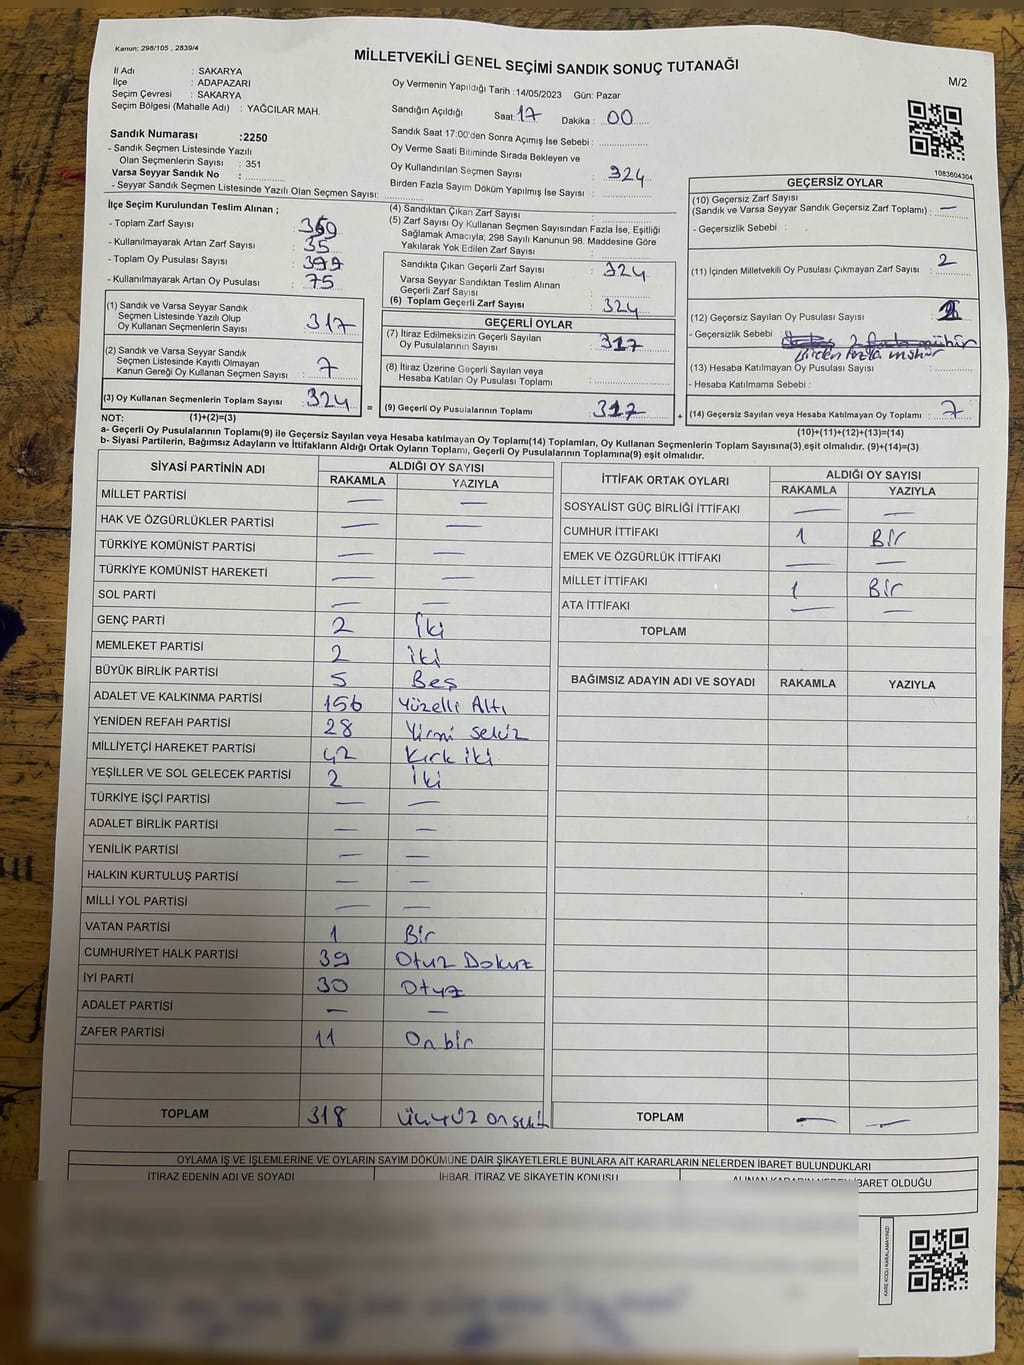 Kanun; 298/105 , 2839/4
MİLLETVEKİLİ GENEL SEÇİMİ SANDIK SONUÇ TUTANAĞI
M/2
İl Adı : SAKARYA
İlçe : ADAPAZARI
Seçim Çevresi : SAKARYA
Seçim Bölgesi (Mahalle Adı) : YAĞCILAR MAH.
Sandık Numarası :2250
- Sandık Seçmen Listesinde Yazılı
Olan Seçmenlerin Sayısı : 351
Varsa Seyyar Sandık No :
- Seyyar Sandık Seçmen Listesinde Yazılı Olan Seçmen Sayısı:
Oy Vermenin Yapıldığı Tarih :14/05/2023 Gün: Pazar
Sandığın Açıldığı Saat: 17 Dakika : 00
Sandık Saat 17:00'den Sonra Açımış İse Sebebi :
Oy Verme Saati Bitiminde Sırada Bekleyen ve
Oy Kullandırılan Seçmen Sayısı : 324
Birden Fazla Sayım Döküm Yapılmış İse Sayısı :
1083604304
İlçe Seçim Kurulundan Teslim Alınan ;
- Toplam Zarf Sayısı : 359
- Kullanılmayarak Artan Zarf Sayısı : 35
- Toplam Oy Pusulası Sayısı : 399
- Kullanılmayarak Artan Oy Pusulası : 75
(1) Sandık ve Varsa Seyyar Sandık
Seçmen Listesinde Yazılı Olup
Oy Kullanan Seçmenlerin Sayısı : 317
(2) Sandık ve Varsa Seyyar Sandık
Seçmen Listesinde Kayıtlı Olmayan
Kanun Gereği Oy Kullanan Seçmen Sayısı : 7
(3) Oy Kullanan Seçmenlerin Toplam Sayısı : 324 =
(4) Sandıktan Çıkan Zarf Sayısı :
(5) Zarf Sayısı Oy Kullanan Seçmen Sayısından Fazla İse, Eşitliği
Sağlamak Amacıyla; 298 Sayılı Kanunun 98. Maddesine Göre
Yakılarak Yok Edilen Zarf Sayısı :
Sandıkta Çıkan Geçerli Zarf Sayısı : 324
Varsa Seyyar Sandıktan Teslim Alınan
Geçerli Zarf Sayısı :
(6) Toplam Geçerli Zarf Sayısı : 324
GEÇERLİ OYLAR
(7) İtiraz Edilmeksizin Geçerli Sayılan
Oy Pusulalarının Sayısı : 317
(8) İtiraz Üzerine Geçerli Sayılan veya
Hesaba Katılan Oy Pusulası Toplamı :
(9) Geçerli Oy Pusulalarının Toplamı : 317 +
GEÇERSİZ OYLAR
(10) Geçersiz Zarf Sayısı
(Sandık ve Varsa Seyyar Sandık Geçersiz Zarf Toplamı) : —
- Geçersizlik Sebebi :
(11) İçinden Milletvekili Oy Pusulası Çıkmayan Zarf Sayısı : 2
(12) Geçersiz Sayılan Oy Pusulası Sayısı :
- Geçersizlik Sebebi : 2 fazla mühür
Birden fazla mühür
(13) Hesaba Katılmayan Oy Pusulası Sayısı :
- Hesaba Katılmama Sebebi :
(14) Geçersiz Sayılan veya Hesaba Katılmayan Oy Toplamı : 7
NOT: (1)+(2)=(3)
(10)+(11)+(12)+(13)=(14)
a- Geçerli Oy Pusulalarının Toplamı(9) ile Geçersiz Sayılan veya Hesaba katılmayan Oy Toplamı(14) Toplamları, Oy Kullanan Seçmenlerin Toplam Sayısına(3) eşit olmalıdır. (9)+(14)=(3)
b- Siyasi Partilerin, Bağımsız Adayların ve İttifakların Aldığı Ortak Oyların Toplamı, Geçerli Oy Pusulalarının Toplamına(9) eşit olmalıdır.
SİYASİ PARTİNİN ADI ALDIĞI OY SAYISI
RAKAMLA YAZIYLA
MİLLET PARTİSİ — —
HAK VE ÖZGÜRLÜKLER PARTİSİ — —
TÜRKİYE KOMÜNİST PARTİSİ — —
TÜRKİYE KOMÜNİST HAREKETİ — —
SOL PARTİ — —
GENÇ PARTİ 2 İki
MEMLEKET PARTİSİ 2 iki
BÜYÜK BİRLİK PARTİSİ 5 Beş
ADALET VE KALKINMA PARTİSİ 156 Yüzelli Altı
YENİDEN REFAH PARTİSİ 28 Yirmi sekiz
MİLLİYETÇİ HAREKET PARTİSİ 42 Kırk iki
YEŞİLLER VE SOL GELECEK PARTİSİ 2 İki
TÜRKİYE İŞÇİ PARTİSİ — —
ADALET BİRLİK PARTİSİ — —
YENİLİK PARTİSİ — —
HALKIN KURTULUŞ PARTİSİ — —
MİLLİ YOL PARTİSİ — —
VATAN PARTİSİ 1 Bir
CUMHURİYET HALK PARTİSİ 39 Otuz Dokuz
İYİ PARTİ 30 Otuz
ADALET PARTİSİ — —
ZAFER PARTİSİ 11 On bir
TOPLAM 318 Üçyüz onsekiz
İTTİFAK ORTAK OYLARI ALDIĞI OY SAYISI
RAKAMLA YAZIYLA
SOSYALİST GÜÇ BİRLİĞİ İTTİFAKI — —
CUMHUR İTTİFAKI 1 Bir
EMEK VE ÖZGÜRLÜK İTTİFAKI — —
MİLLET İTTİFAKI 1 Bir
ATA İTTİFAKI — —
TOPLAM
BAĞIMSIZ ADAYIN ADI VE SOYADI RAKAMLA YAZIYLA
TOPLAM — —
OYLAMA İŞ VE İŞLEMLERİNE VE OYLARIN SAYIM DÖKÜMÜNE DAİR ŞİKAYETLERLE BUNLARA AİT KARARLARIN NELERDEN İBARET BULUNDUKLARI
İTİRAZ EDENİN ADI VE SOYADI İHBAR, İTİRAZ VE ŞİKAYETİN KONUSU ALINAN KARARIN NEDEN İBARET OLDUĞU
KARE KODU KARALAMAYINIZ!